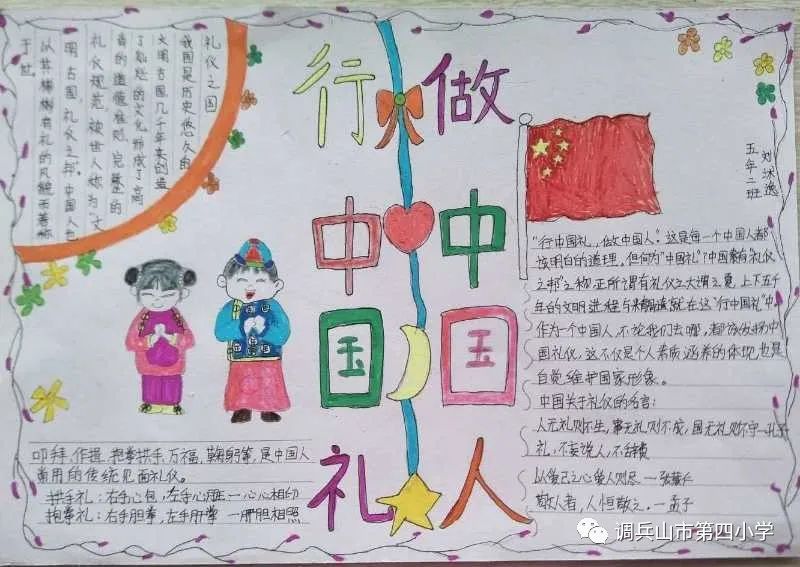 做中国人
行中国礼
刘沐逸
五年二班
礼仪之国
我国是历史悠久的
文明古国几千年来创造
了灿烂的文化形成了高
尚的道德准则、完整的
礼仪规范被世人称为“文
明古国,礼仪之邦。中国人也
以其彬彬有礼的风貌而著称
于世
“行中国礼,做文中国人”这是每一个中国人都
该明白的道理,但何为“中国礼”?中国素有“礼仪
之邦”之称,正所谓有礼仪之大谓之夏,上下五千
年的文明进程与
就在这“行中国礼”中
作为一个中国人,不论我们去哪,都该发扬中
国礼仪,这不仅是个人素质涵养的体现,也是
自觉维护国家形象。
中国关于礼仪的名言:
人无礼则不生,事无礼则不成,国无礼则不宁—孔子
礼,不妄说人,不辞费
以爱己之心爱人则尽
敬人者,人恒敬之。—孟子
叩拜,作揖,抱拳拱手,万福,鞠躬等,是中国人
常用的传统见面礼仪。
拱手礼:右手心包,左手心
—心心相印
抱拳礼:右手胆拳,左手肝掌 —肝胆相照
调兵山市第四小学